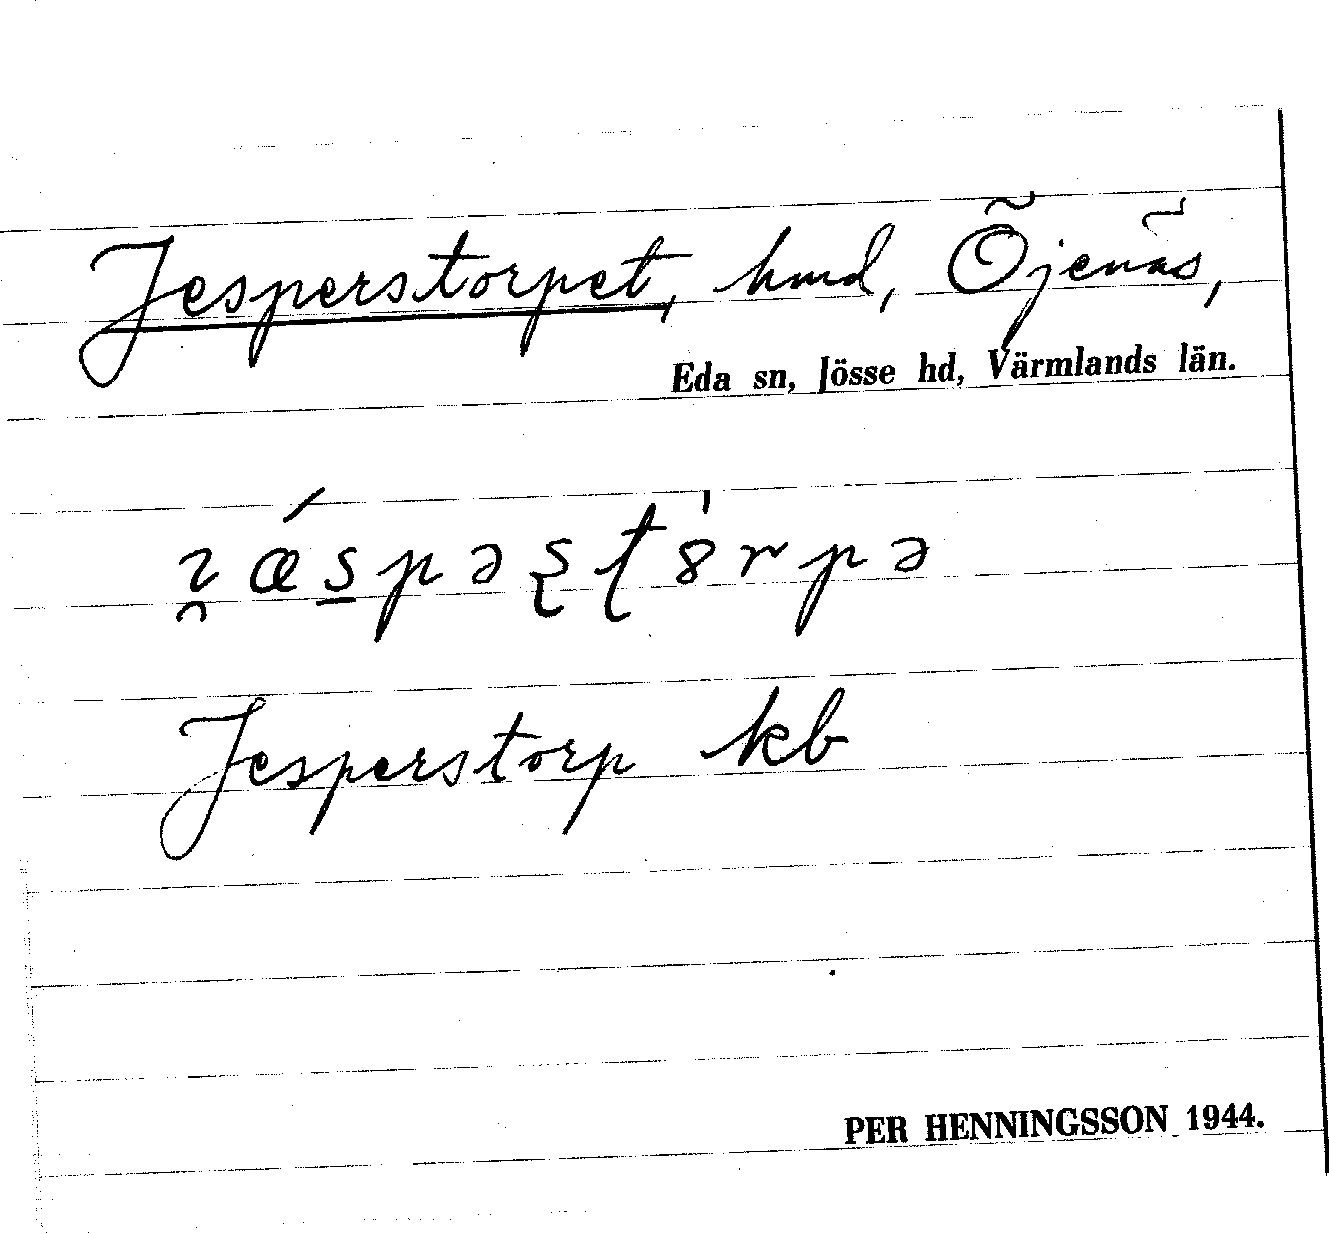 Jesperstorpet, hmd, Öjenäs,
Eda sn, Jösse hd, Värmlands län.
Jesperstorp kb
PER HENNINGSSON 1944.